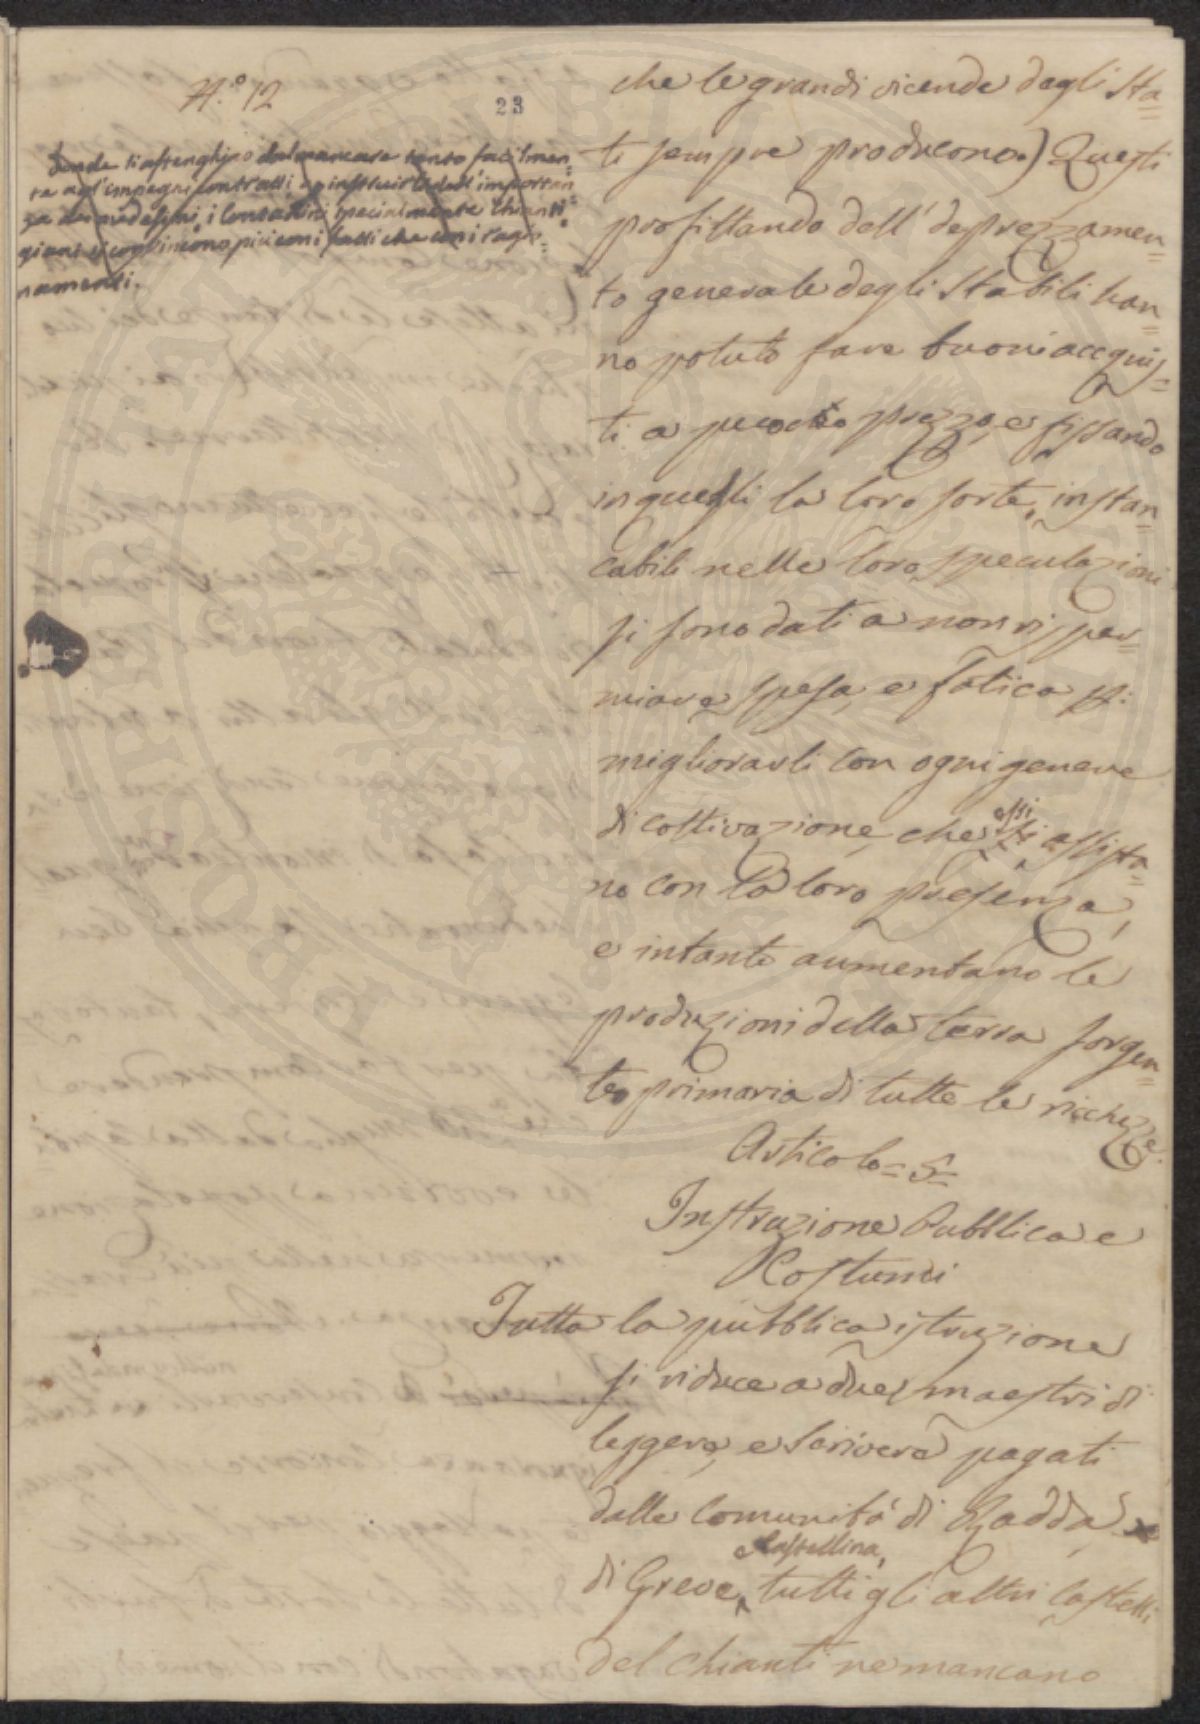 N.º 12
23
onde si astenghino dal mancare tanto facilmen=
te agl'impegni contratti, e instruirli dell'importan=
za dei medesimi, i Contadini specialmente Chianti=
giani si convincono più con i fatti che con i ragio=
namenti.
che le grandi vicende degli Sta=
ti sempre producono.) Questi
profittando dell'deprezzamen=
to generale degli Stabili han=
no potuto fare buoni acquis=
ti a poco prezzo, e fissando
in quelli la loro sorte, instan=
cabili nelle loro speculazioni
si sono dati a non rispar=
miare spesa, e fatica p:
migliorarli con ogni genere
di coltivazione, che essi assista=
no con la loro presenza,
e intanto aumentano le
produzioni della terra sorgen=
te primaria di tutte le ricchezze.
Articolo = 5 =
Instruzione Pubblica e
Costumi
Tutta la pubblica istruzione
si riduce a due maestri di
leggere, e scrivere pagati
dalle Comunità di Radda,
e Castellina,
di Greve, tutti gli altri Castelli
del Chianti ne mancano